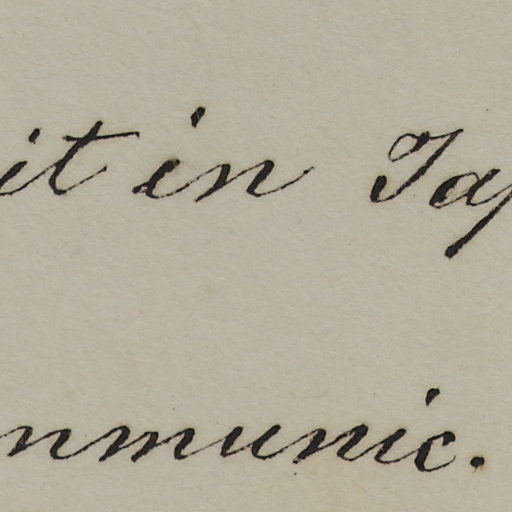 it in Jap
mmunic.